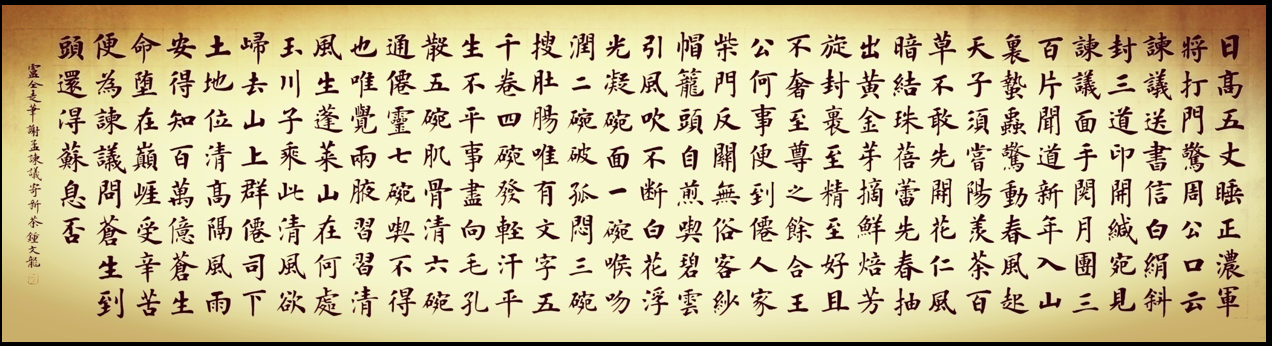 日高五丈睡正濃軍
將打門驚周公口云
諫議送書信白絹斜
封三道印開緘宛見
諫議面手閱月團三
百片聞道新年入山
裏蟄蟲驚動春風起
天子須嘗陽羨茶百
草不敢先開花仁風
暗結珠蓓蕾先春抽
出黃金芽摘鮮焙芳
旋封裹至精至好且
不奢至尊之餘合王
公何事便到僊人家
柴門反關無俗客紗
帽籠頭自煎喫碧雲
引風吹不断白花浮
光凝碗面一碗喉吻
潤二碗破孤悶三碗
搜肚腸唯有文字五
千卷四碗發輕汗平
生不平事盡向毛孔
散五碗肌骨清六碗
通僊靈七碗喫不得
也唯覺兩腋習習清
風生蓬萊山在何處
玉川子乘此清風欲
歸去山上群僊司下
土地位清高隔風雨
安得知百萬億蒼生
命墮在巔崖受辛苦
便為諫議問蒼生到
頭還得蘇息否
盧仝走筆謝孟諫議寄新茶 鍾文龍